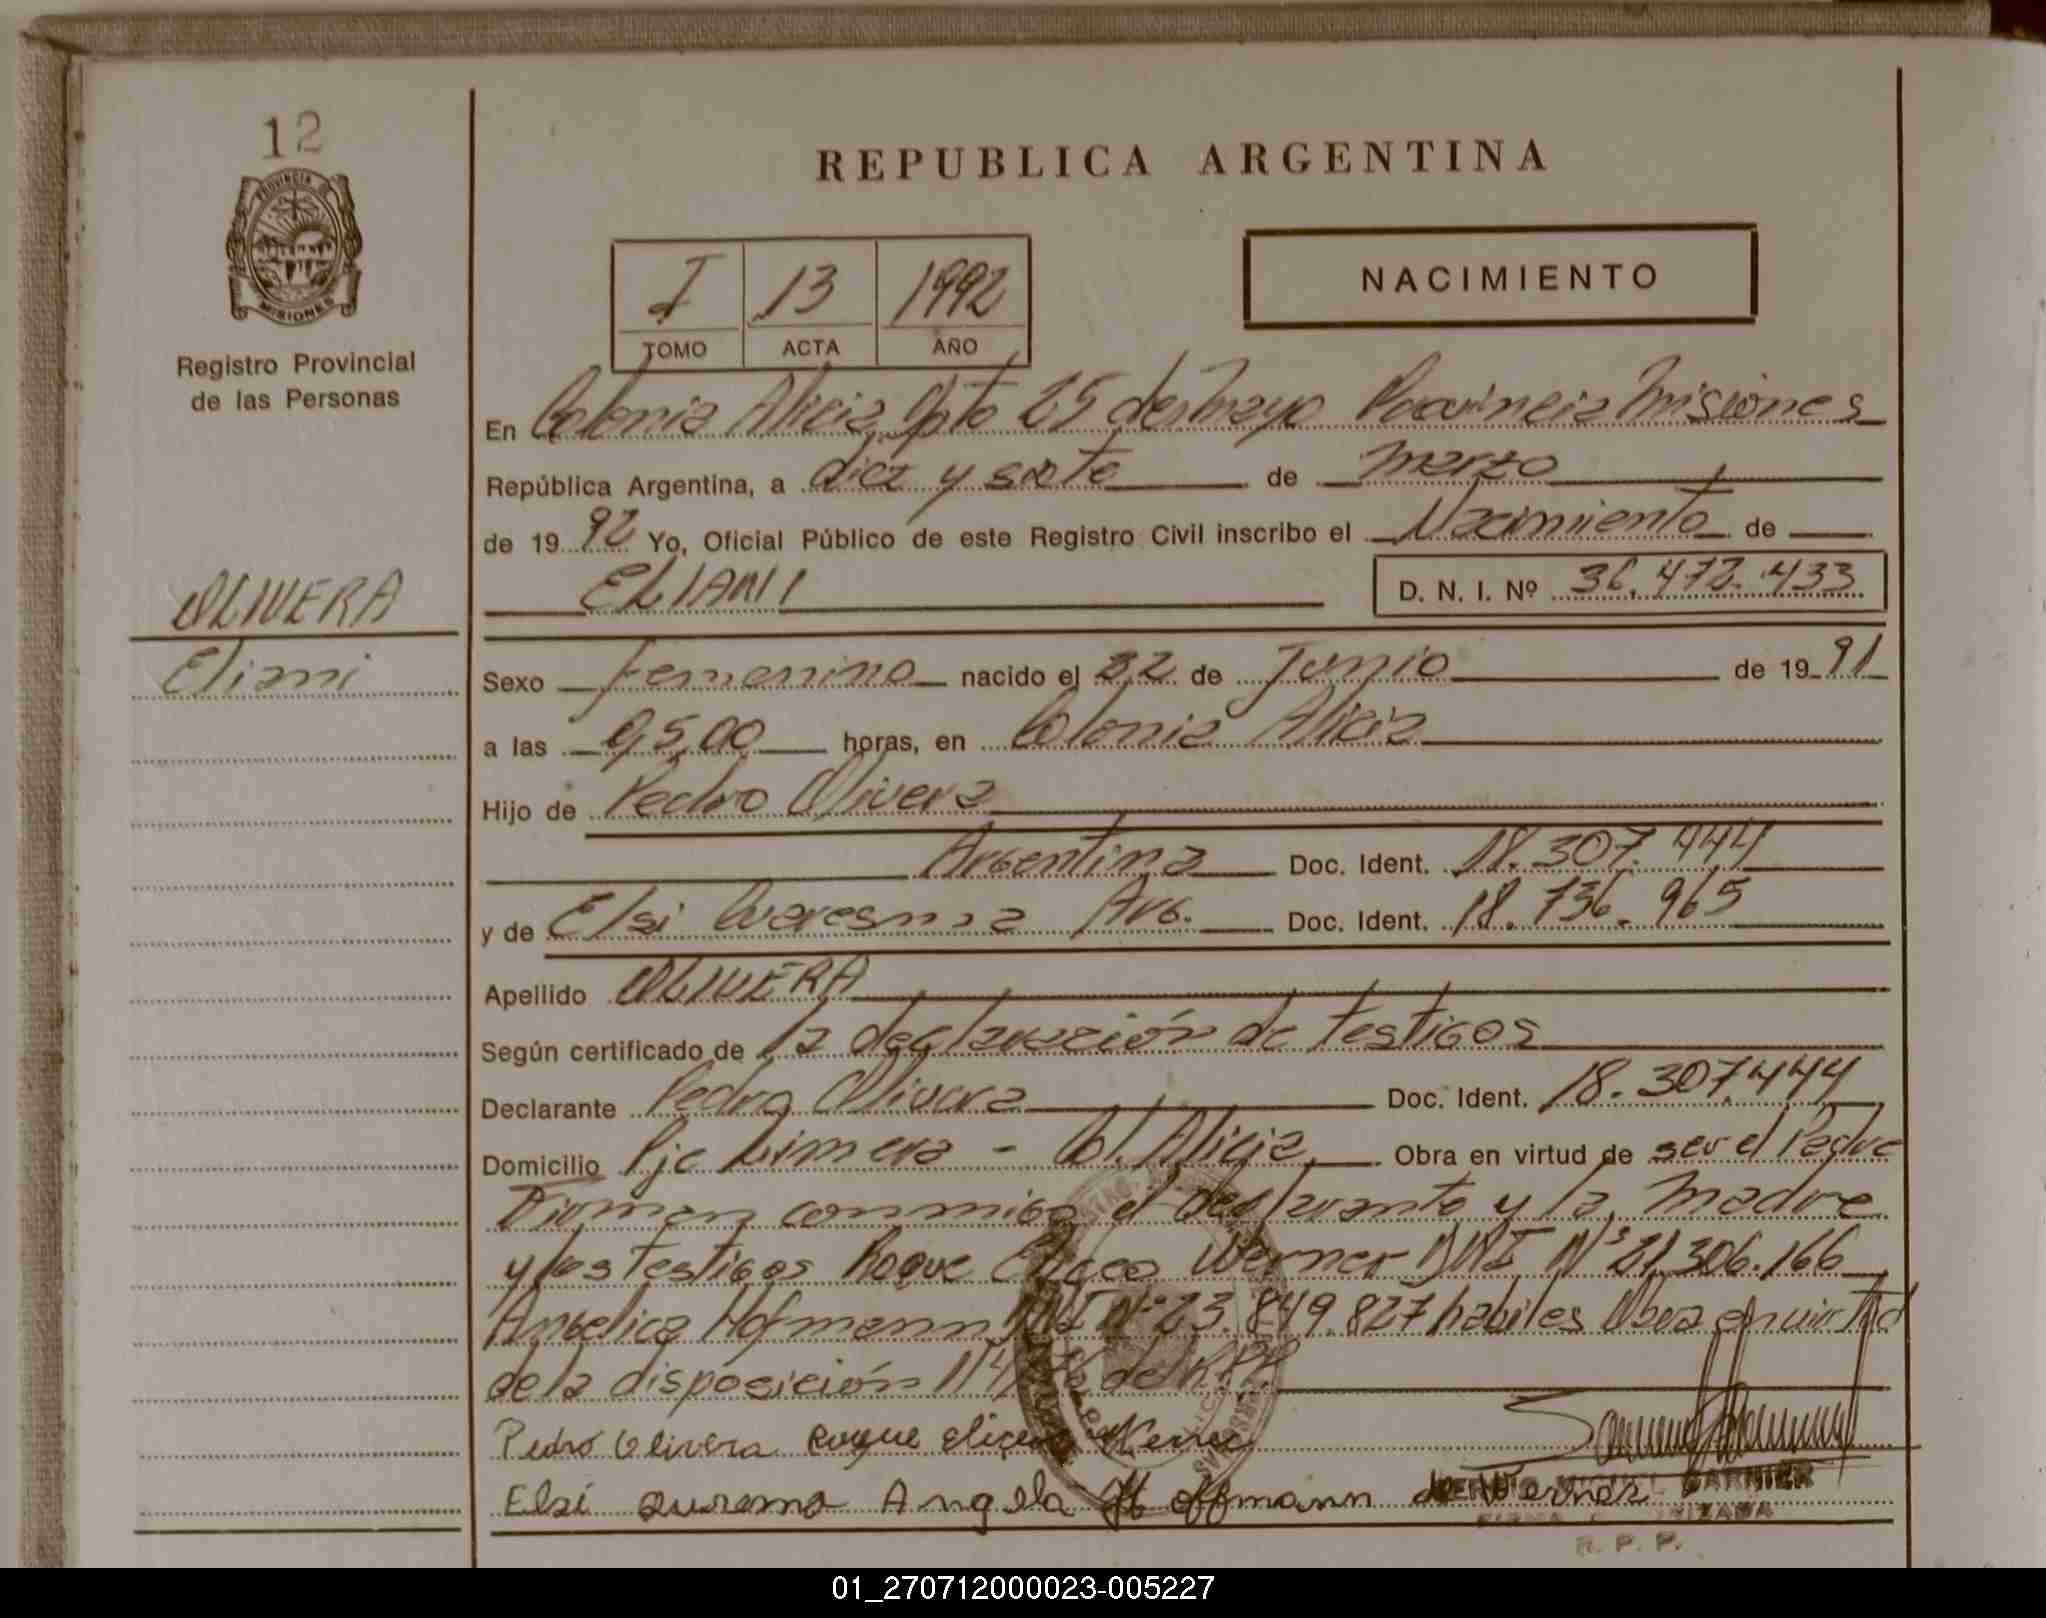 12
PROVINCIA DE
MISIONES
Registro Provincial
de las Personas
OLIVERA
Eliani
REPUBLICA ARGENTINA
I 13 1992
TOMO ACTA AÑO
NACIMIENTO
En Colonia Alicia Dpto 25 de Mayo Provincia Misiones
República Argentina, a diez y siete de Marzo
de 19 92 Yo, Oficial Público de este Registro Civil inscribo el Nacimiento de
ELIANI D. N. I. Nº 36.472.433
Sexo Femenino nacido el 22 de Junio de 19 91
a las 05,00 horas, en Colonia Alicia
Hijo de Pedro Olivera
Argentina Doc. Ident. 18.307.444
y de Elsi Cuaresma Arg. Doc. Ident. 18.736.965
Apellido OLIVERA
Según certificado de la declaración de testigos
Declarante Pedro Olivera Doc. Ident. 18.307.444
Domicilio Pje Limera - Col. Alicia Obra en virtud de ser el Padre
Firman conmigo el declarante y la Madre
y los testigos Roque Werner DNI Nº 21.306.166
Angelica Hofmann DNI Nº 23.849.827 habiles Obra en virtud
de la disposición 114/ de R.P.P.
Pedro Olivera Roque
Elsi Angela Hoffmann de Werner
GARNIER
R. P. P.
01_270712000023-005227